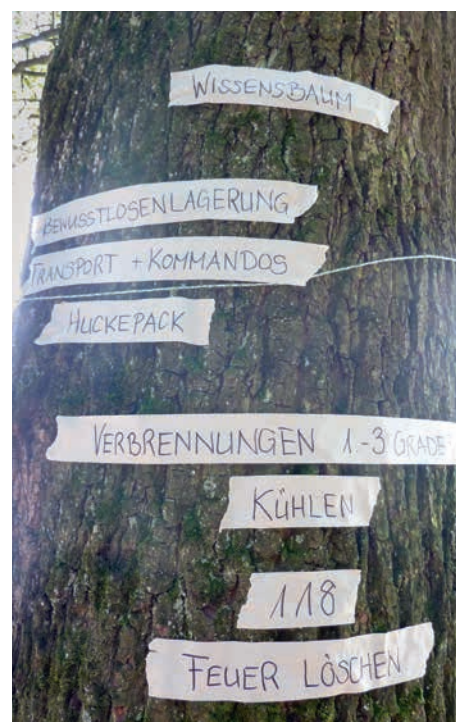 WISSENSBAUM
BEWUSSTLOSENLAGERUNG
TRANSPORT + KOMMANDOS
HUCKEPACK
VERBRENNUNGEN 1.-3 GRADE
KÜHLEN
118
FEUER LÖSCHEN